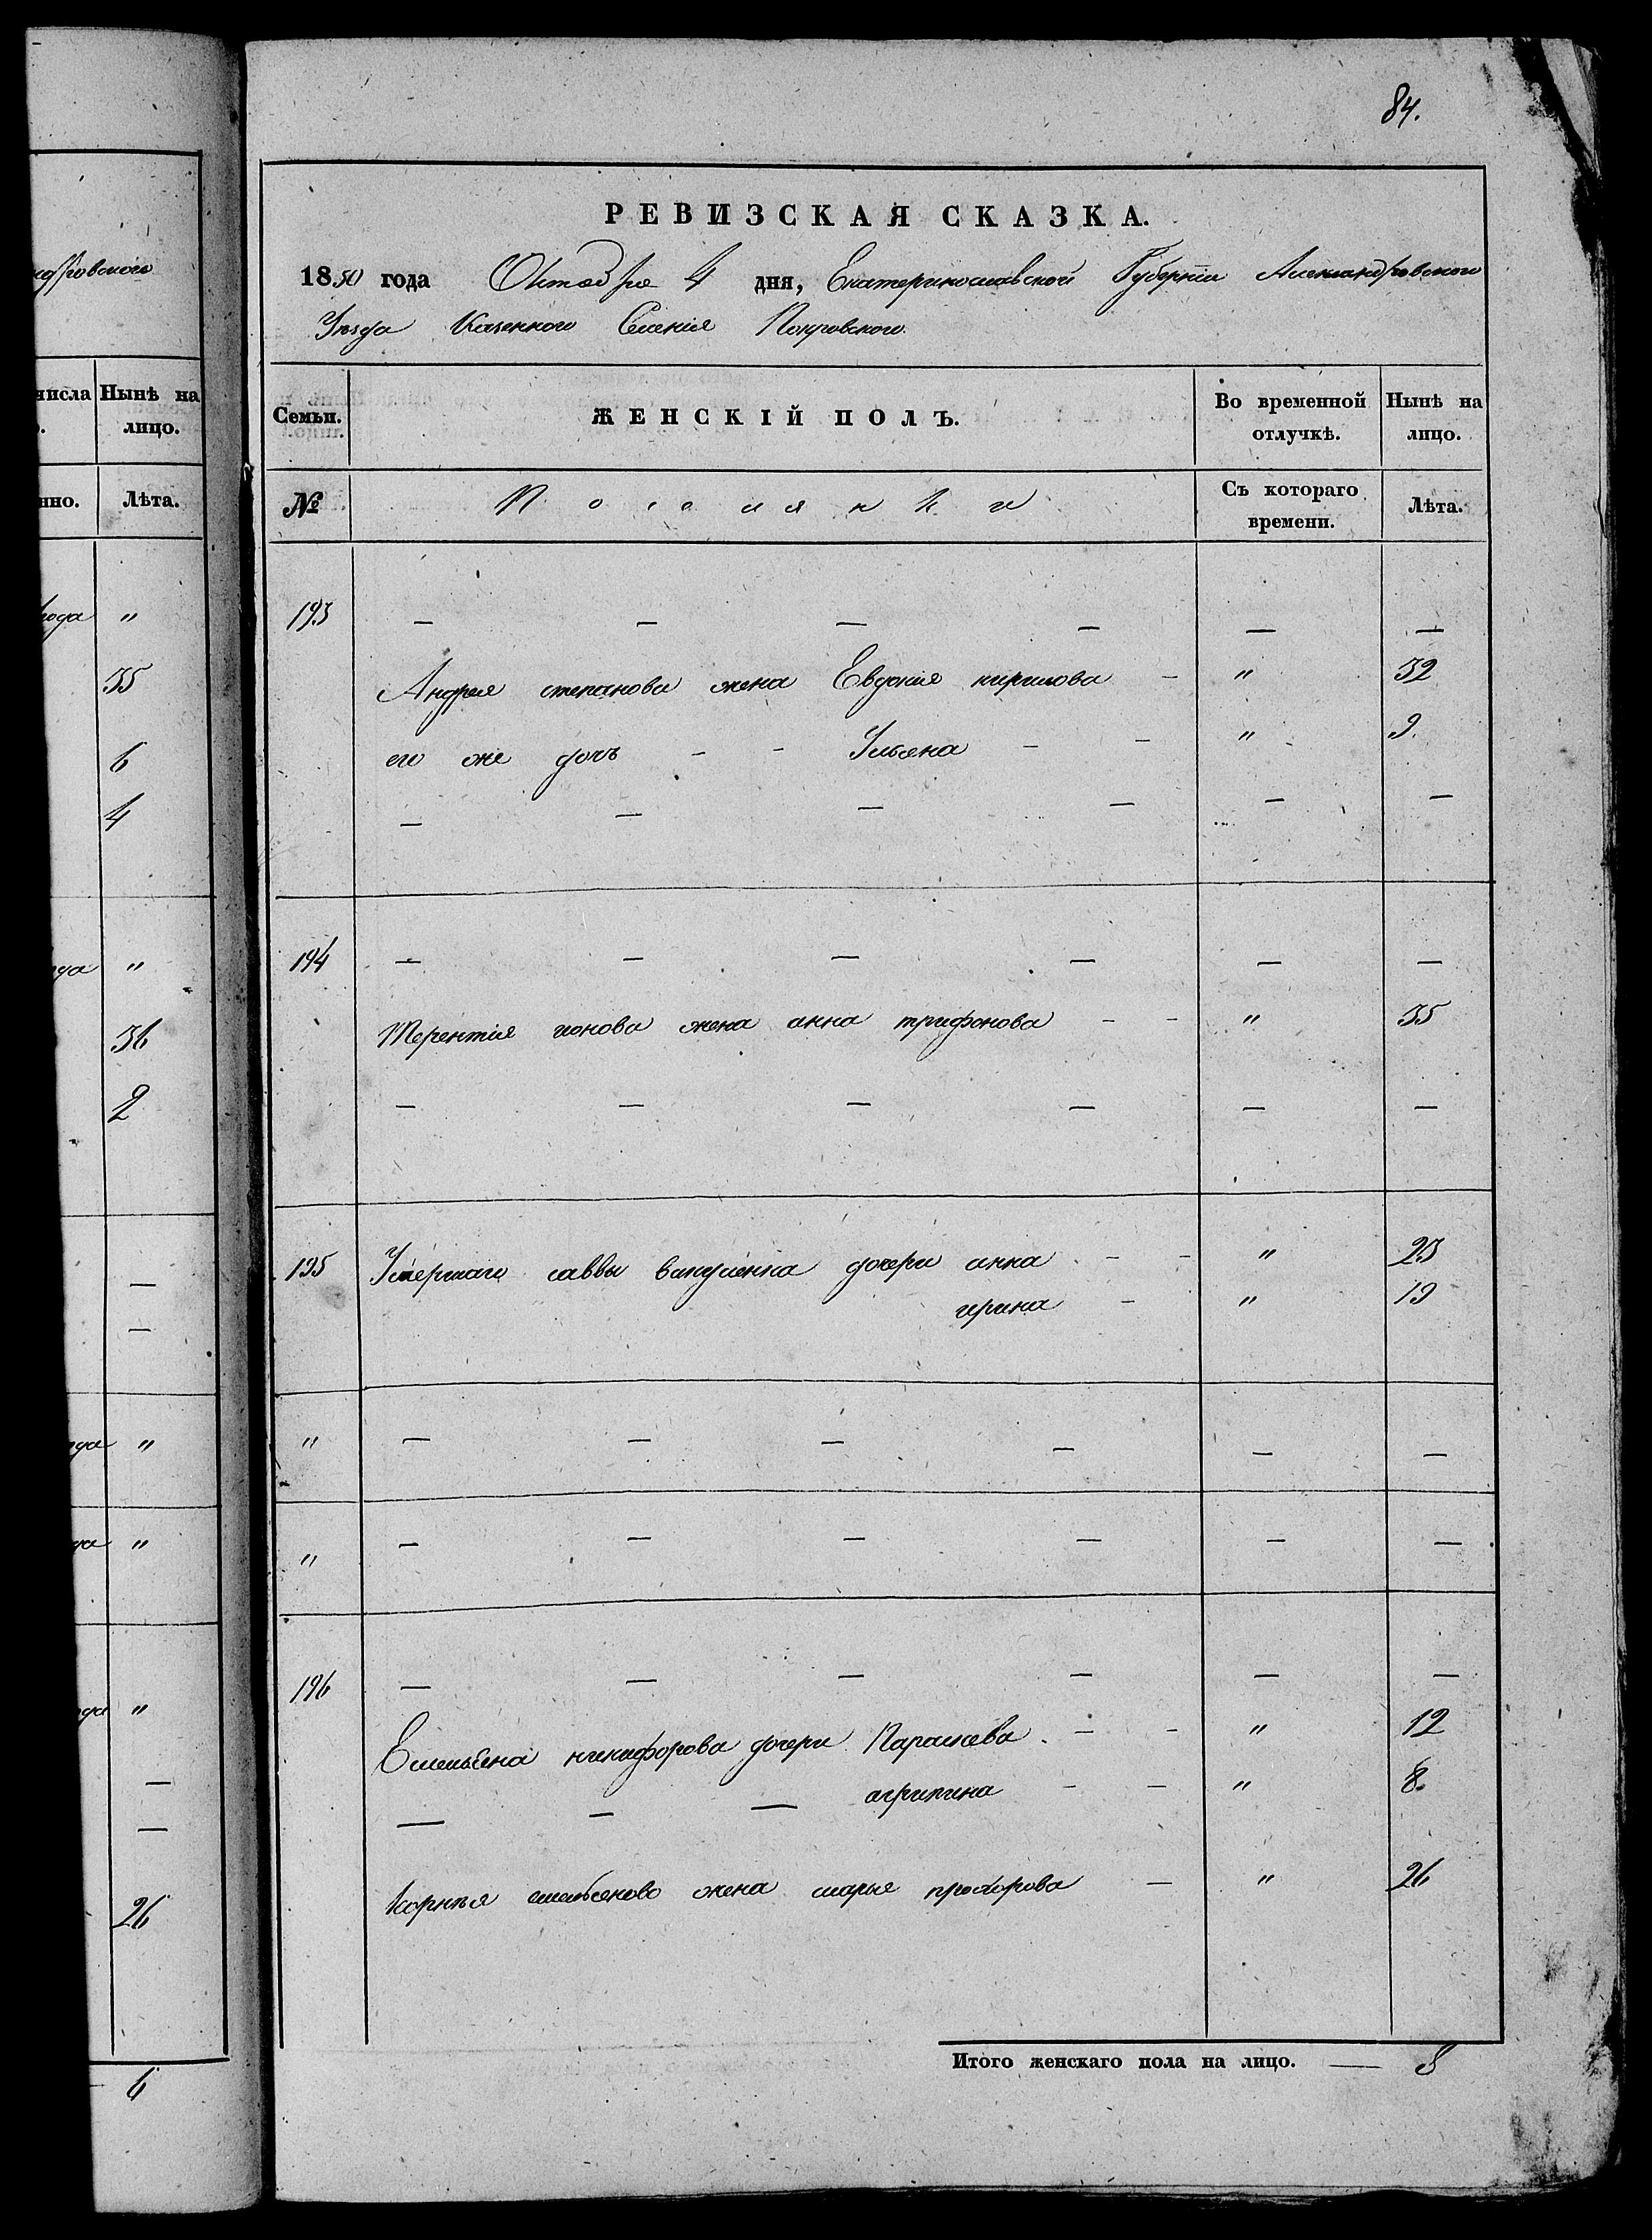 84.
РЕВИЗСКАЯ СКАЗКА.
1850 года Октября 4 дня, Екатеринославской Губернiи Александровского
Уѣзда Казенного Селенiя Покровского.
Семьи. ЖЕНСКIЙ ПОЛЪ. Во временной отлучкѣ. Нынѣ на лицо.
№ Поселянки Съ котораго времени. Лѣта.
193 — — — — — —
Андрея степанова жена Евдокiя кирилова - " 32
его же дочь - - Ульяна - - " 9.
— — — — — —
194 — — — — — —
Терентiя ионова жена анна трифонова - - " 35
— — — — — —
195 Умершаго саввы дочери анна - - " 23
ирина - " 19
" — — — — — —
" — — — — — —
196 — — — — — —
Емельяна никифорова дочери Параскева - - " 12
— — — агрипина - - " 8.
Корнѣя емельянова жена марья прохорова — " 26
Итого женскаго пола на лицо. — 8
ндровского
числа Нынѣ на
лицо.
нно. Лѣта.
года "
35
6
4
да "
36
2
—
—
да "
да "
да "
—
—
26
6